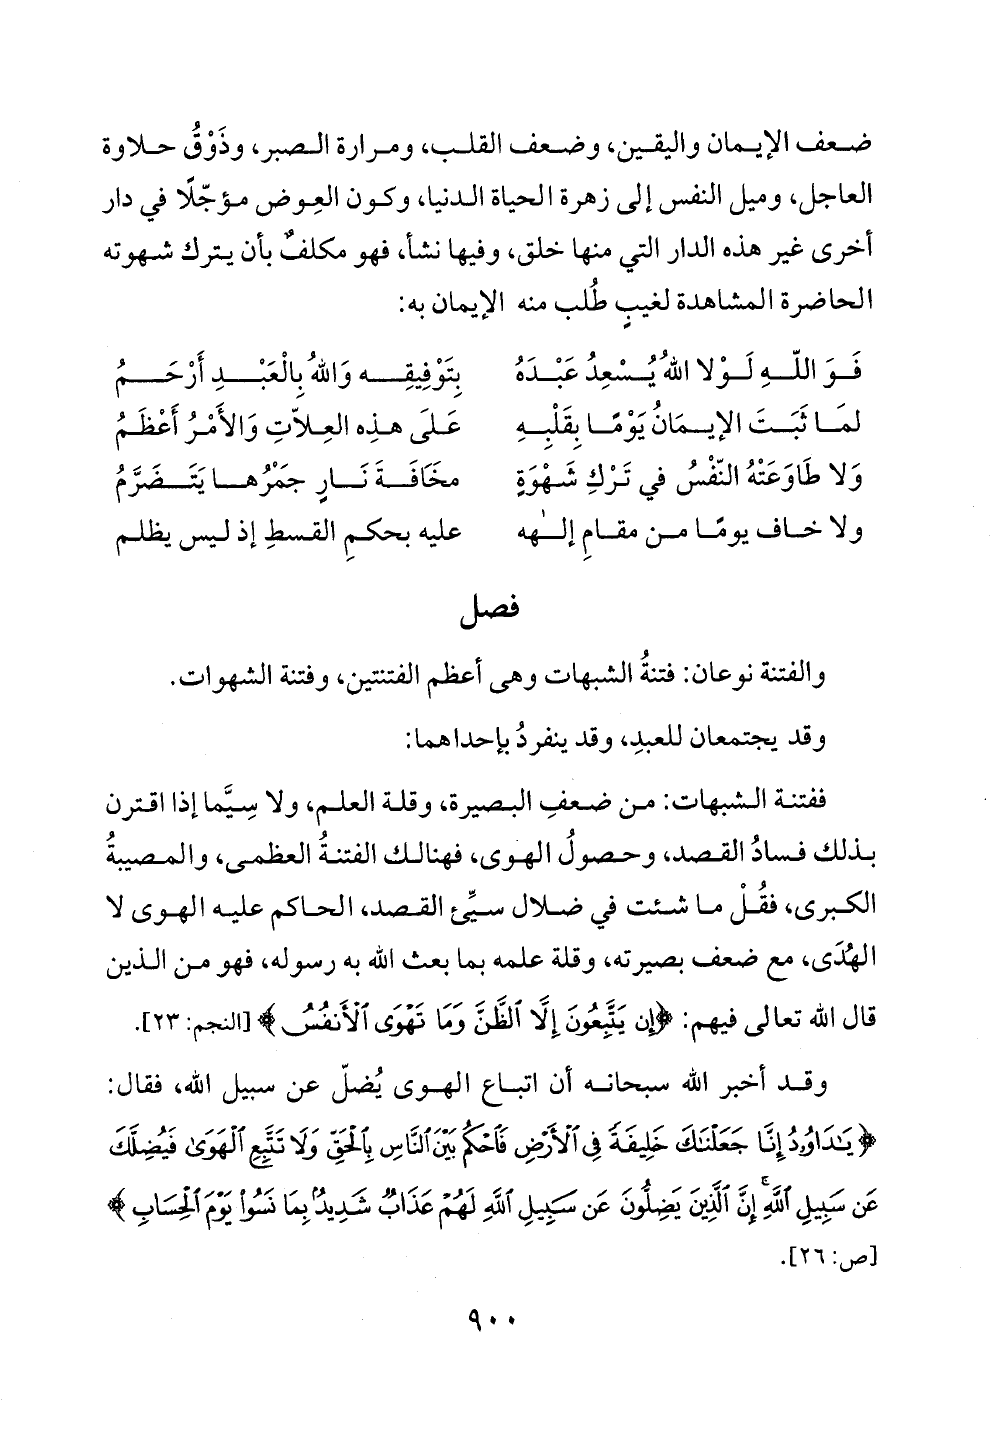 ضعف الإيمان واليقين، وضعف القلب، ومرارة الصبر، وذَوْقُ حلاوة
العاجل، وميل النفس إلى زهرة الحياة الدنيا، وكون العِوض مؤجّلًا في دار
أخرى غير هذه الدار التي منها خلق، وفيها نشأ، فهو مكلفٌ بأن يترك شهوته
الحاضرة المشاهدة لغيبٍ طُلب منه الإيمان به:
فَوَ اللّهِ لَوْلا اللهُ يُسْعِدُ عَبْدَهُ بِتَوْفِيقِهِ وَاللهُ بِالْعَبْدِ أَرْحَمُ
لمَا ثَبَتَ الإيمَانُ يَوْمًا بِقَلْبِهِ عَلَى هذِهِ العِلاّتِ وَالأَمْرُ أَعْظَمُ
وَلا طَاوَعَتْهُ النّفْسُ في تَرْكِ شَهْوَةٍ مخَافَةَ نَارٍ جمَرُها يَتَضَرَّمُ
ولا خاف يومًا من مقامِ إلٰهه عليه بحكمِ القسطِ إذ ليس يظلم
فصل
والفتنة نوعان: فتنةُ الشبهات وهى أعظم الفتنتين، وفتنة الشهوات.
وقد يجتمعان للعبدِ، وقد ينفردُ بإحداهما:
ففتنة الشبهات: من ضعفِ البصيرة، وقلة العلم، ولا سِيَّما إذا اقترن
بذلك فسادُ القصد، وحصولُ الهوى، فهنالك الفتنةُ العظمى، والمصيبةُ
الكبرى، فقُلْ ما شئت في ضلال سيِّئ القصد، الحاكم عليه الهوى لا
الهُدَى، مع ضعف بصيرته، وقلة علمه بما بعث الله به رسوله، فهو من الذين
قال الله تعالى فيهم: ﴿إِن يَتَّبِعُونَ إِلَّا ٱلظَّنَّ وَمَا تَهْوَى ٱلْأَنفُسُ﴾ [النجم: ٢٣].
وقد أخبر الله سبحانه أن اتباع الهوى يُضلّ عن سبيل الله، فقال:
﴿يَٰدَاوُۥدُ إِنَّا جَعَلْنَٰكَ خَلِيفَةً فِى ٱلْأَرْضِ فَٱحْكُم بَيْنَ ٱلنَّاسِ بِٱلْحَقِّ وَلَا تَتَّبِعِ ٱلْهَوَىٰ فَيُضِلَّكَ
عَن سَبِيلِ ٱللَّهِ ۚ إِنَّ ٱلَّذِينَ يَضِلُّونَ عَن سَبِيلِ ٱللَّهِ لَهُمْ عَذَابٌ شَدِيدٌۢ بِمَا نَسُوا۟ يَوْمَ ٱلْحِسَابِ﴾
[ص: ٢٦].
٩٠٠